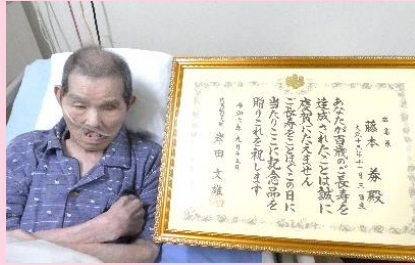 藤本 殿
あなたが百歳のご長寿を
達成されたことは誠に
慶賀にたえません
ご長寿をことほぐこの日に
当たりここに記念品を
贈りこれを祝します
内閣総理大臣 岸田 文雄